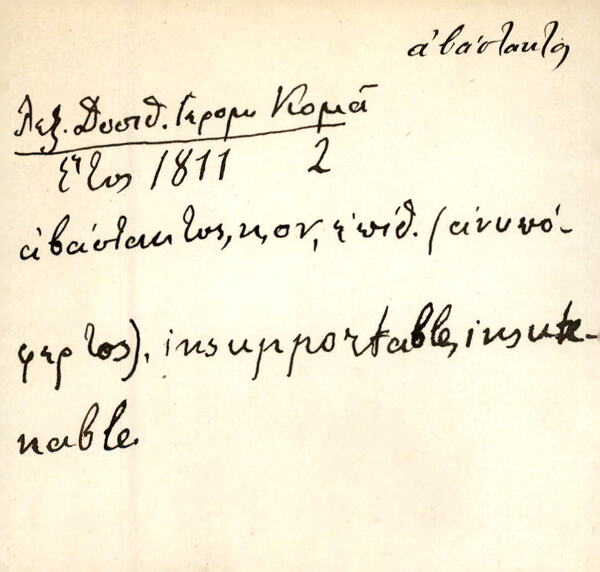 ἀβάστακτος
Λεξ. Δοσιθ. Γερομ. Κομᾶ
ἔτος 1811 2
ἀβάστακτος, η, ον, ἐπίθ. (ἀνυπό-
φερτος), insupportable, insute-
nable.